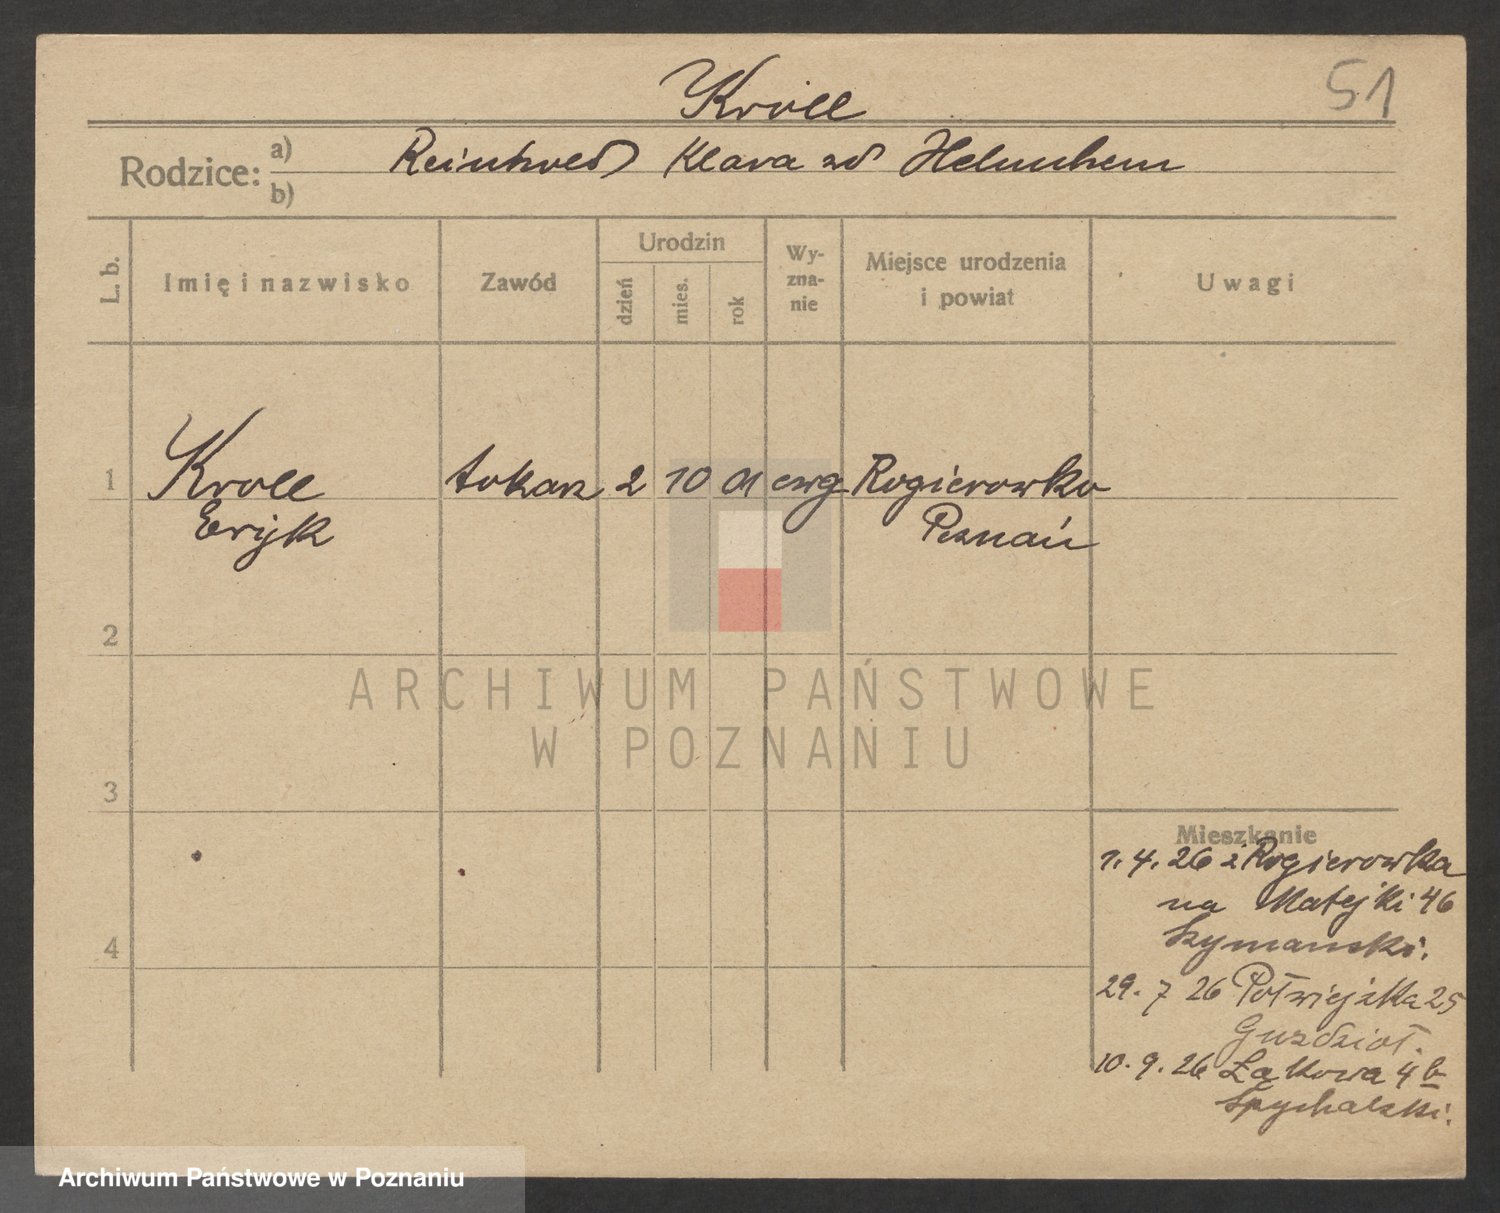 Kroll
51
Rodzice: a) b)
Reinhold Klara zd Helmchem
L. b.
Imię i nazwisko
Zawód
Urodzin
dzień
mies.
rok
Wy-
zna-
nie
Miejsce urodzenia
i powiat
Uwagi
1 Kroll tokarz 2 10 01 ewg Rogierowko
Eryk Poznań
2
ARCHIWUM PAŃSTWOWE
W POZNANIU
3
Mieszkanie
1. 4. 26 z Rogierowka
na Matejki 46
Szymanski.
4
29. 7 26 Półwiejska 25
Guzdzioł.
10. 9. 26 Łąkowa 4 b
Spychalski.
Archiwum Państwowe w Poznaniu